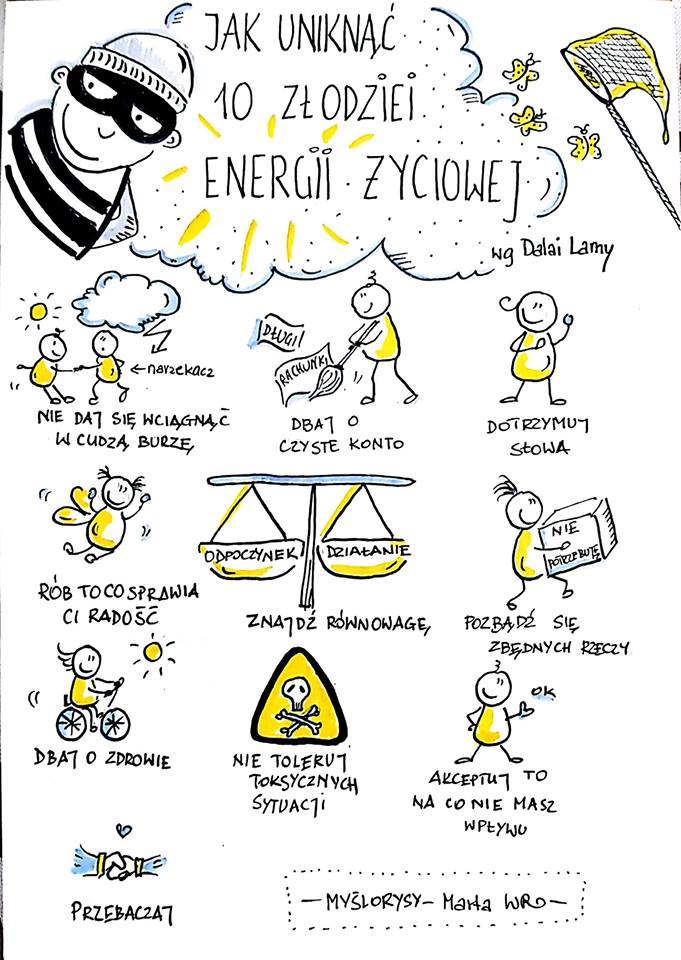 JAK UNIKNĄĆ
10 ZŁODZIEI
ENERGII ŻYCIOWEJ
wg Dalai Lamy
narzekacz
NIE DAJ SIĘ WCIĄGNĄĆ
W CUDZĄ BURZĘ
DŁUGI
RACHUNKI
DBAJ O
CZYSTE KONTO
DOTRZYMUJ
SŁOWA
RÓB TO CO SPRAWIA
CI RADOŚĆ
ODPOCZYNEK
DZIAŁANIE
ZNAJDŹ RÓWNOWAGĘ
NIE
POTRZEBUJĘ
POZBĄDŹ SIĘ
ZBĘDNYCH RZECZY
DBAJ O ZDROWIE
NIE TOLERUJ
TOKSYCZNYCH
SYTUACJI
OK
AKCEPTUJ TO
NA CO NIE MASZ
WPŁYWU
PRZEBACZAJ
— MYŚLORYSY – Marta WRO —